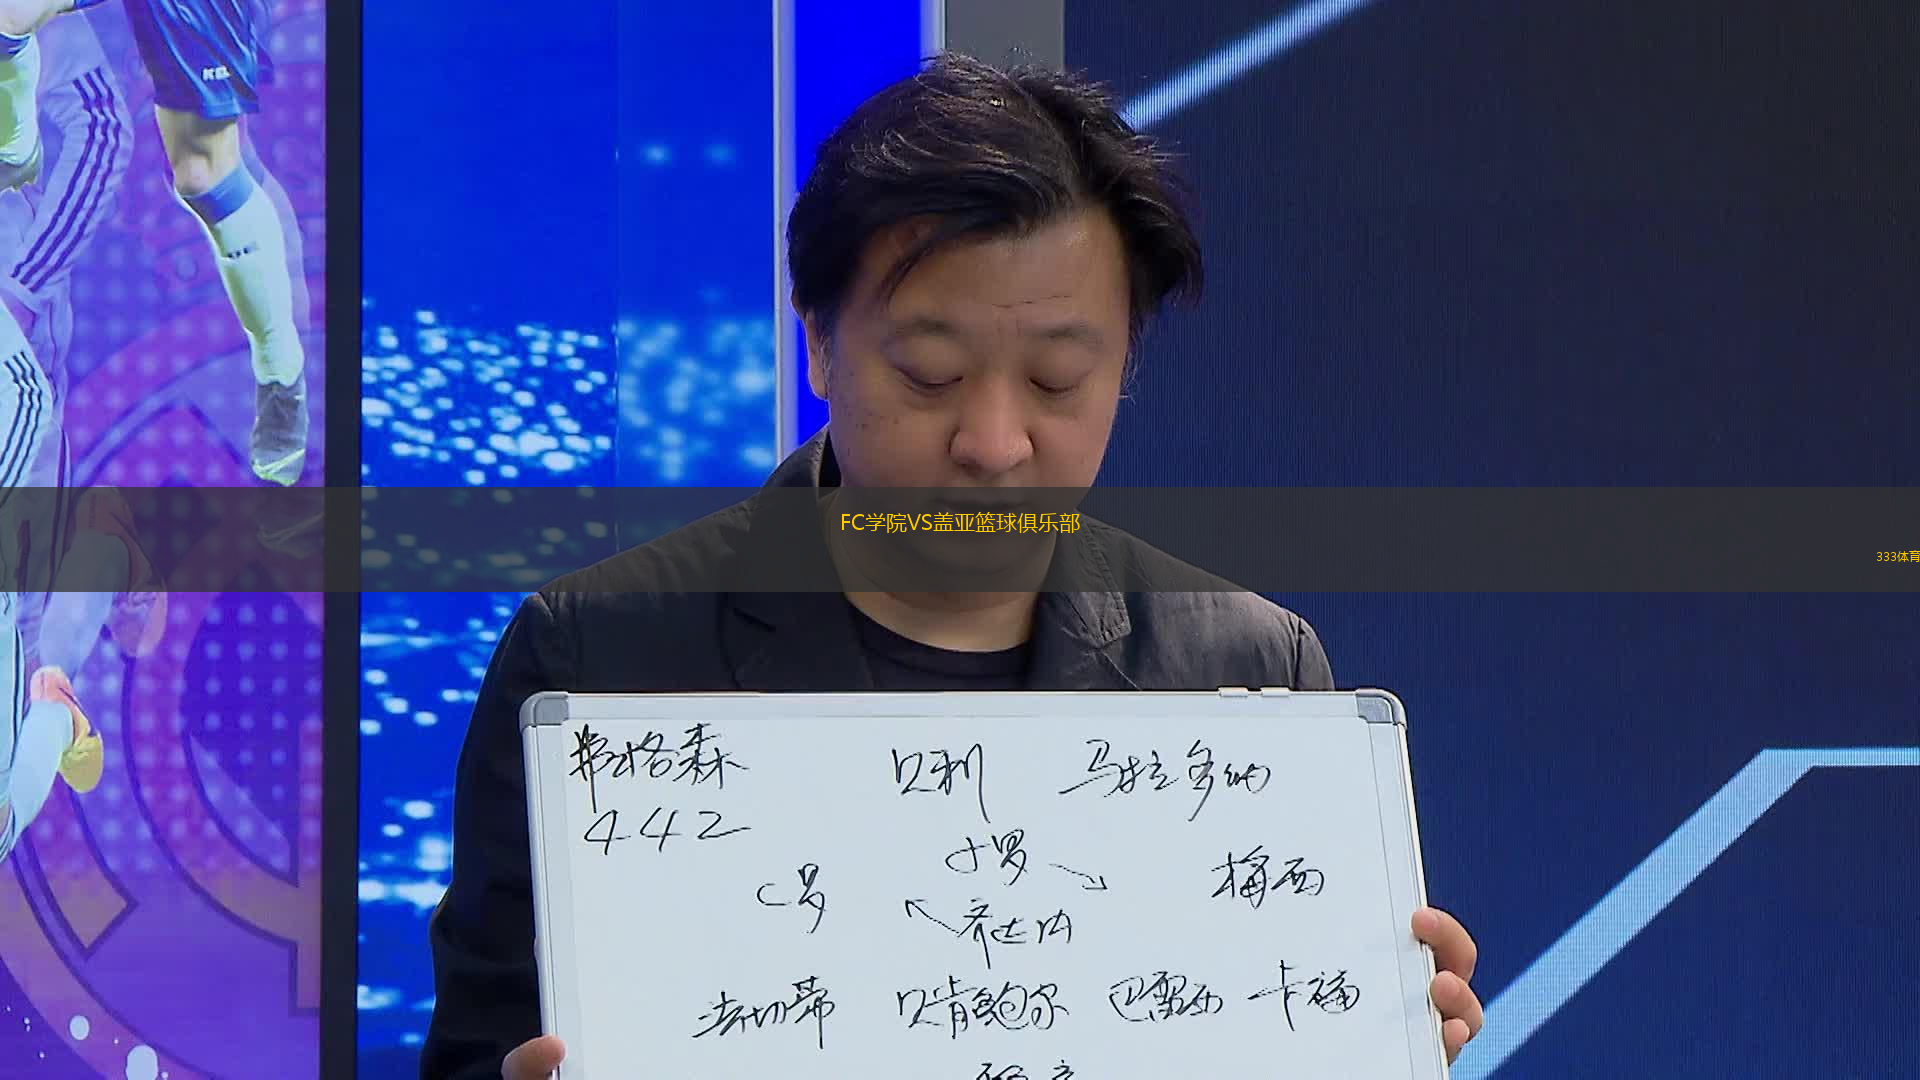 FC学院VS盖亚篮球俱乐部
333体育
弗格森 贝利 马拉多纳
442
小罗
C罗 梅西
齐达内
法切蒂 贝肯鲍尔 巴雷西 卡福